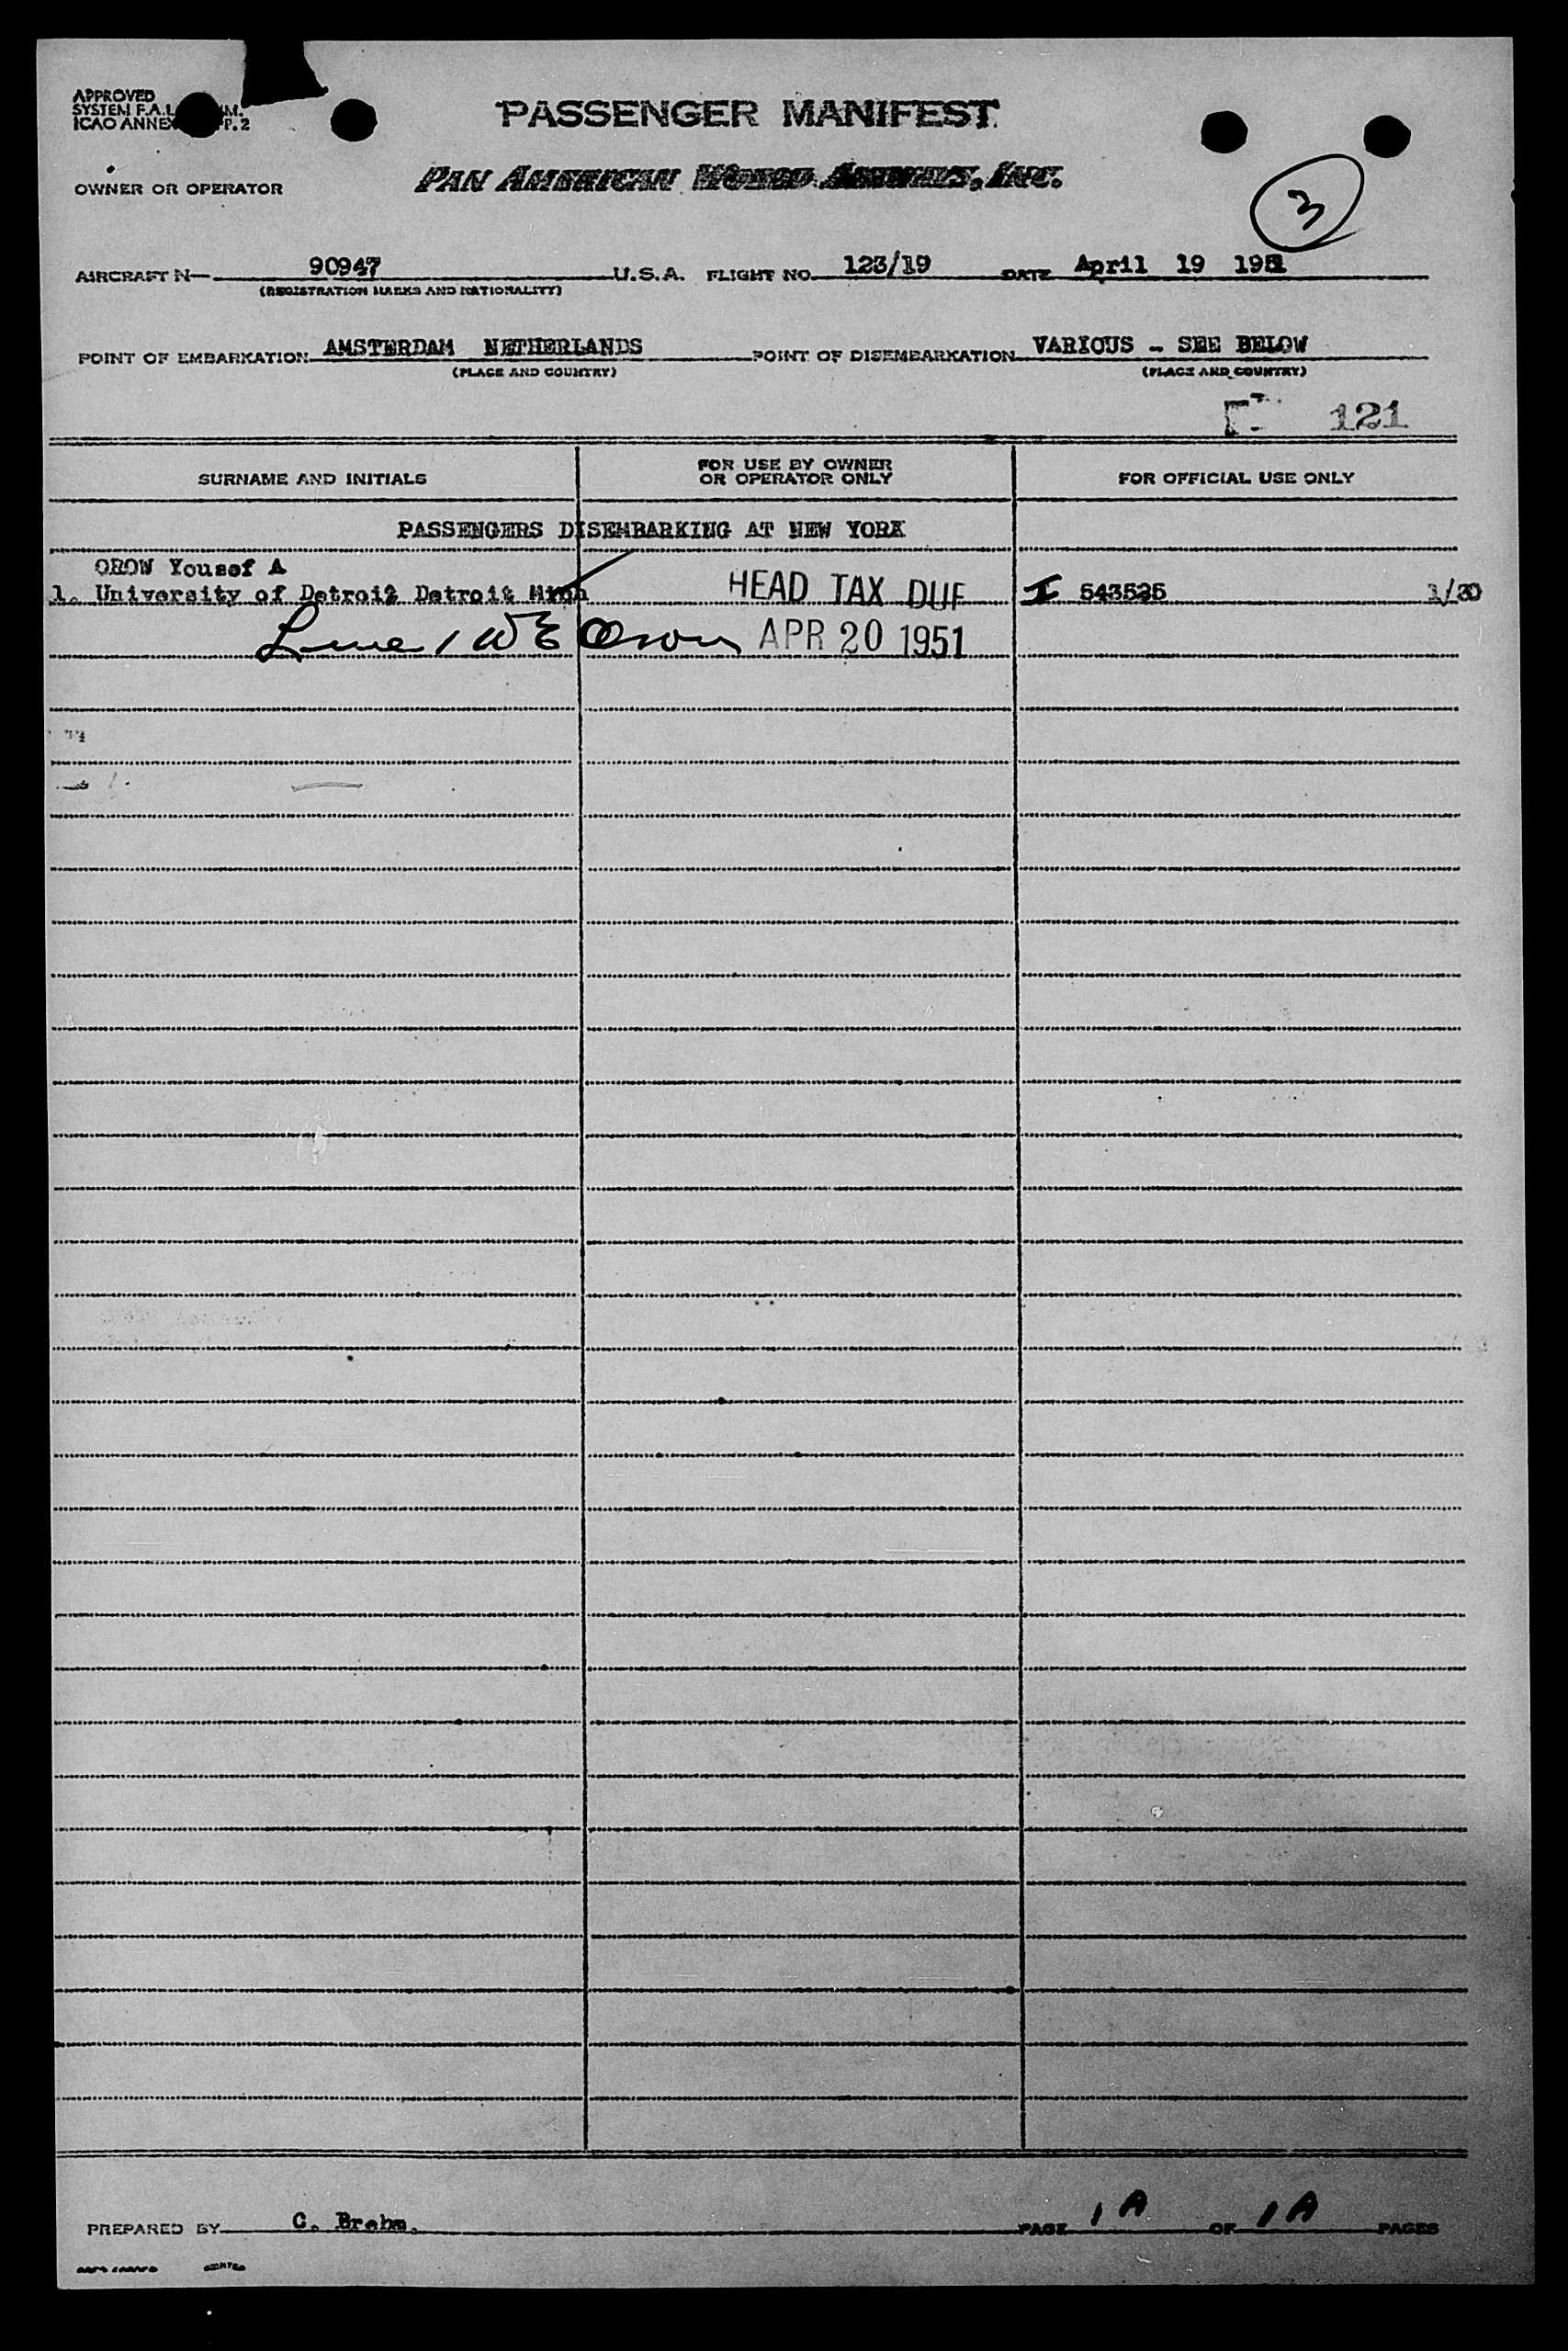 APPROVED
SYSTEM F.A.L. M.
ICAO ANNEX P. 2
PASSENGER MANIFEST
OWNER OR OPERATOR PAN AMERICAN WORLD AIRWAYS, INC.
3
AIRCRAFT N— 90947 U.S.A. FLIGHT NO. 123/19 DATE April 19 1951
(REGISTRATION MARKS AND NATIONALITY)
POINT OF EMBARKATION AMSTERDAM NETHERLANDS POINT OF DISEMBARKATION VARIOUS - SEE BELOW
(PLACE AND COUNTRY) (PLACE AND COUNTRY)
121
SURNAME AND INITIALS FOR USE BY OWNER OR OPERATOR ONLY FOR OFFICIAL USE ONLY
PASSENGERS DISEMBARKING AT NEW YORK
OROW Yousef A
1. University of Detroit Detroit Mich HEAD TAX DUE I 543525 1/30
Line 1 W E APR 20 1951
PREPARED BY C. Brehm. PAGE 1A OF 1A PAGES